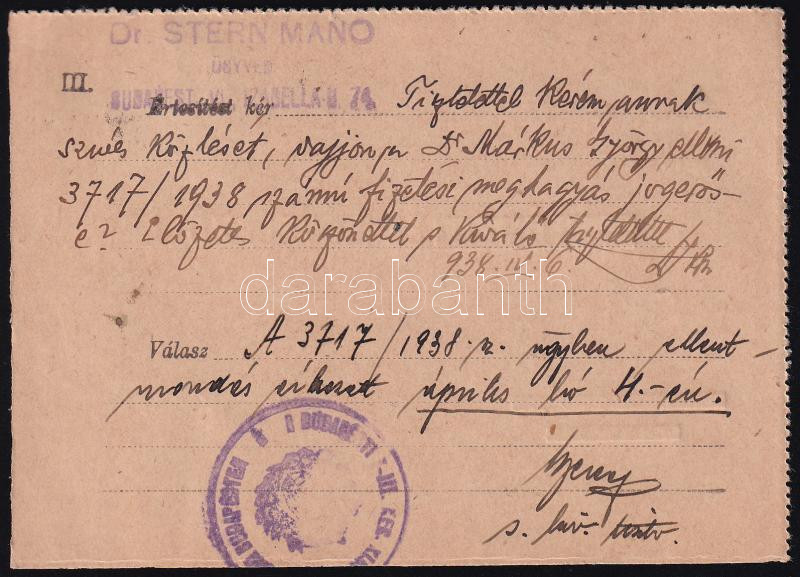 Dr. STERN MANÓ
ÜGYVÉD
BUDAPEST, VI. IZABELLA-U. 74.
III.
Értesítést kér Tisztelettel kérem annak
szives közlését, vajjon a Dr Márkus György elleni
3717/1938 számú fizetési meghagyás jogerős-
é? Előzetes köszönettel s kiváló tisztelettel
938. IV. 6. Dr
darabanth
Válasz A 3717/1938. sz. ügyben ellent-
mondás érkezett április hó 4.-én.
s. hiv. tiszt.